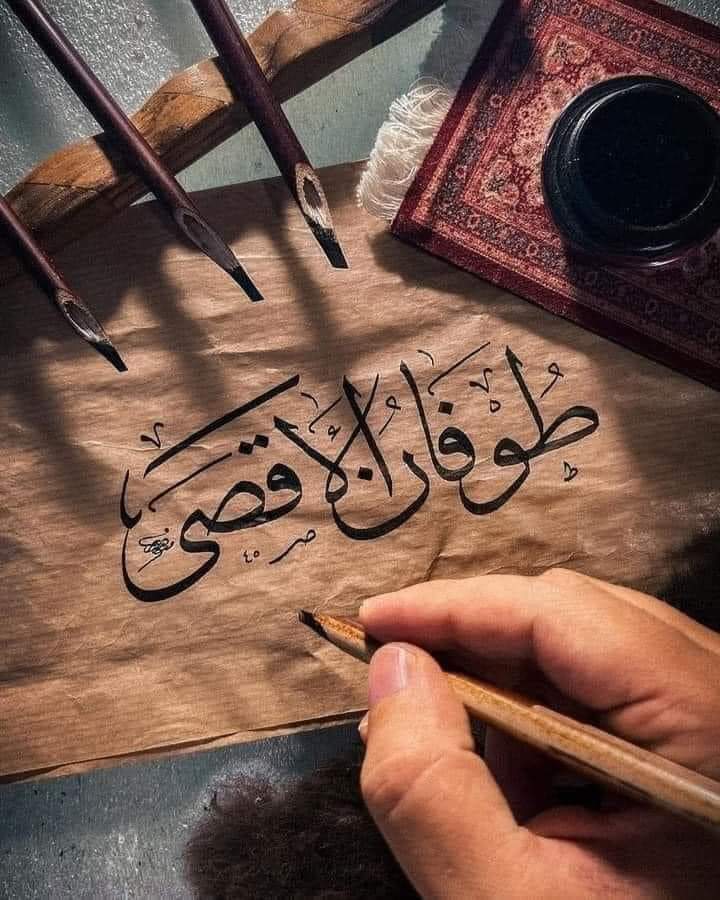 طُوفَانُ الْأَقْصَىٰ